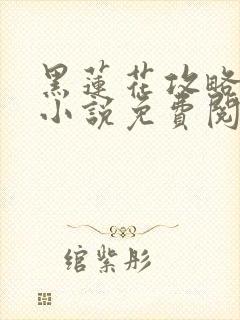 黑蓮花攻略
小說免費閱
綰紫彤